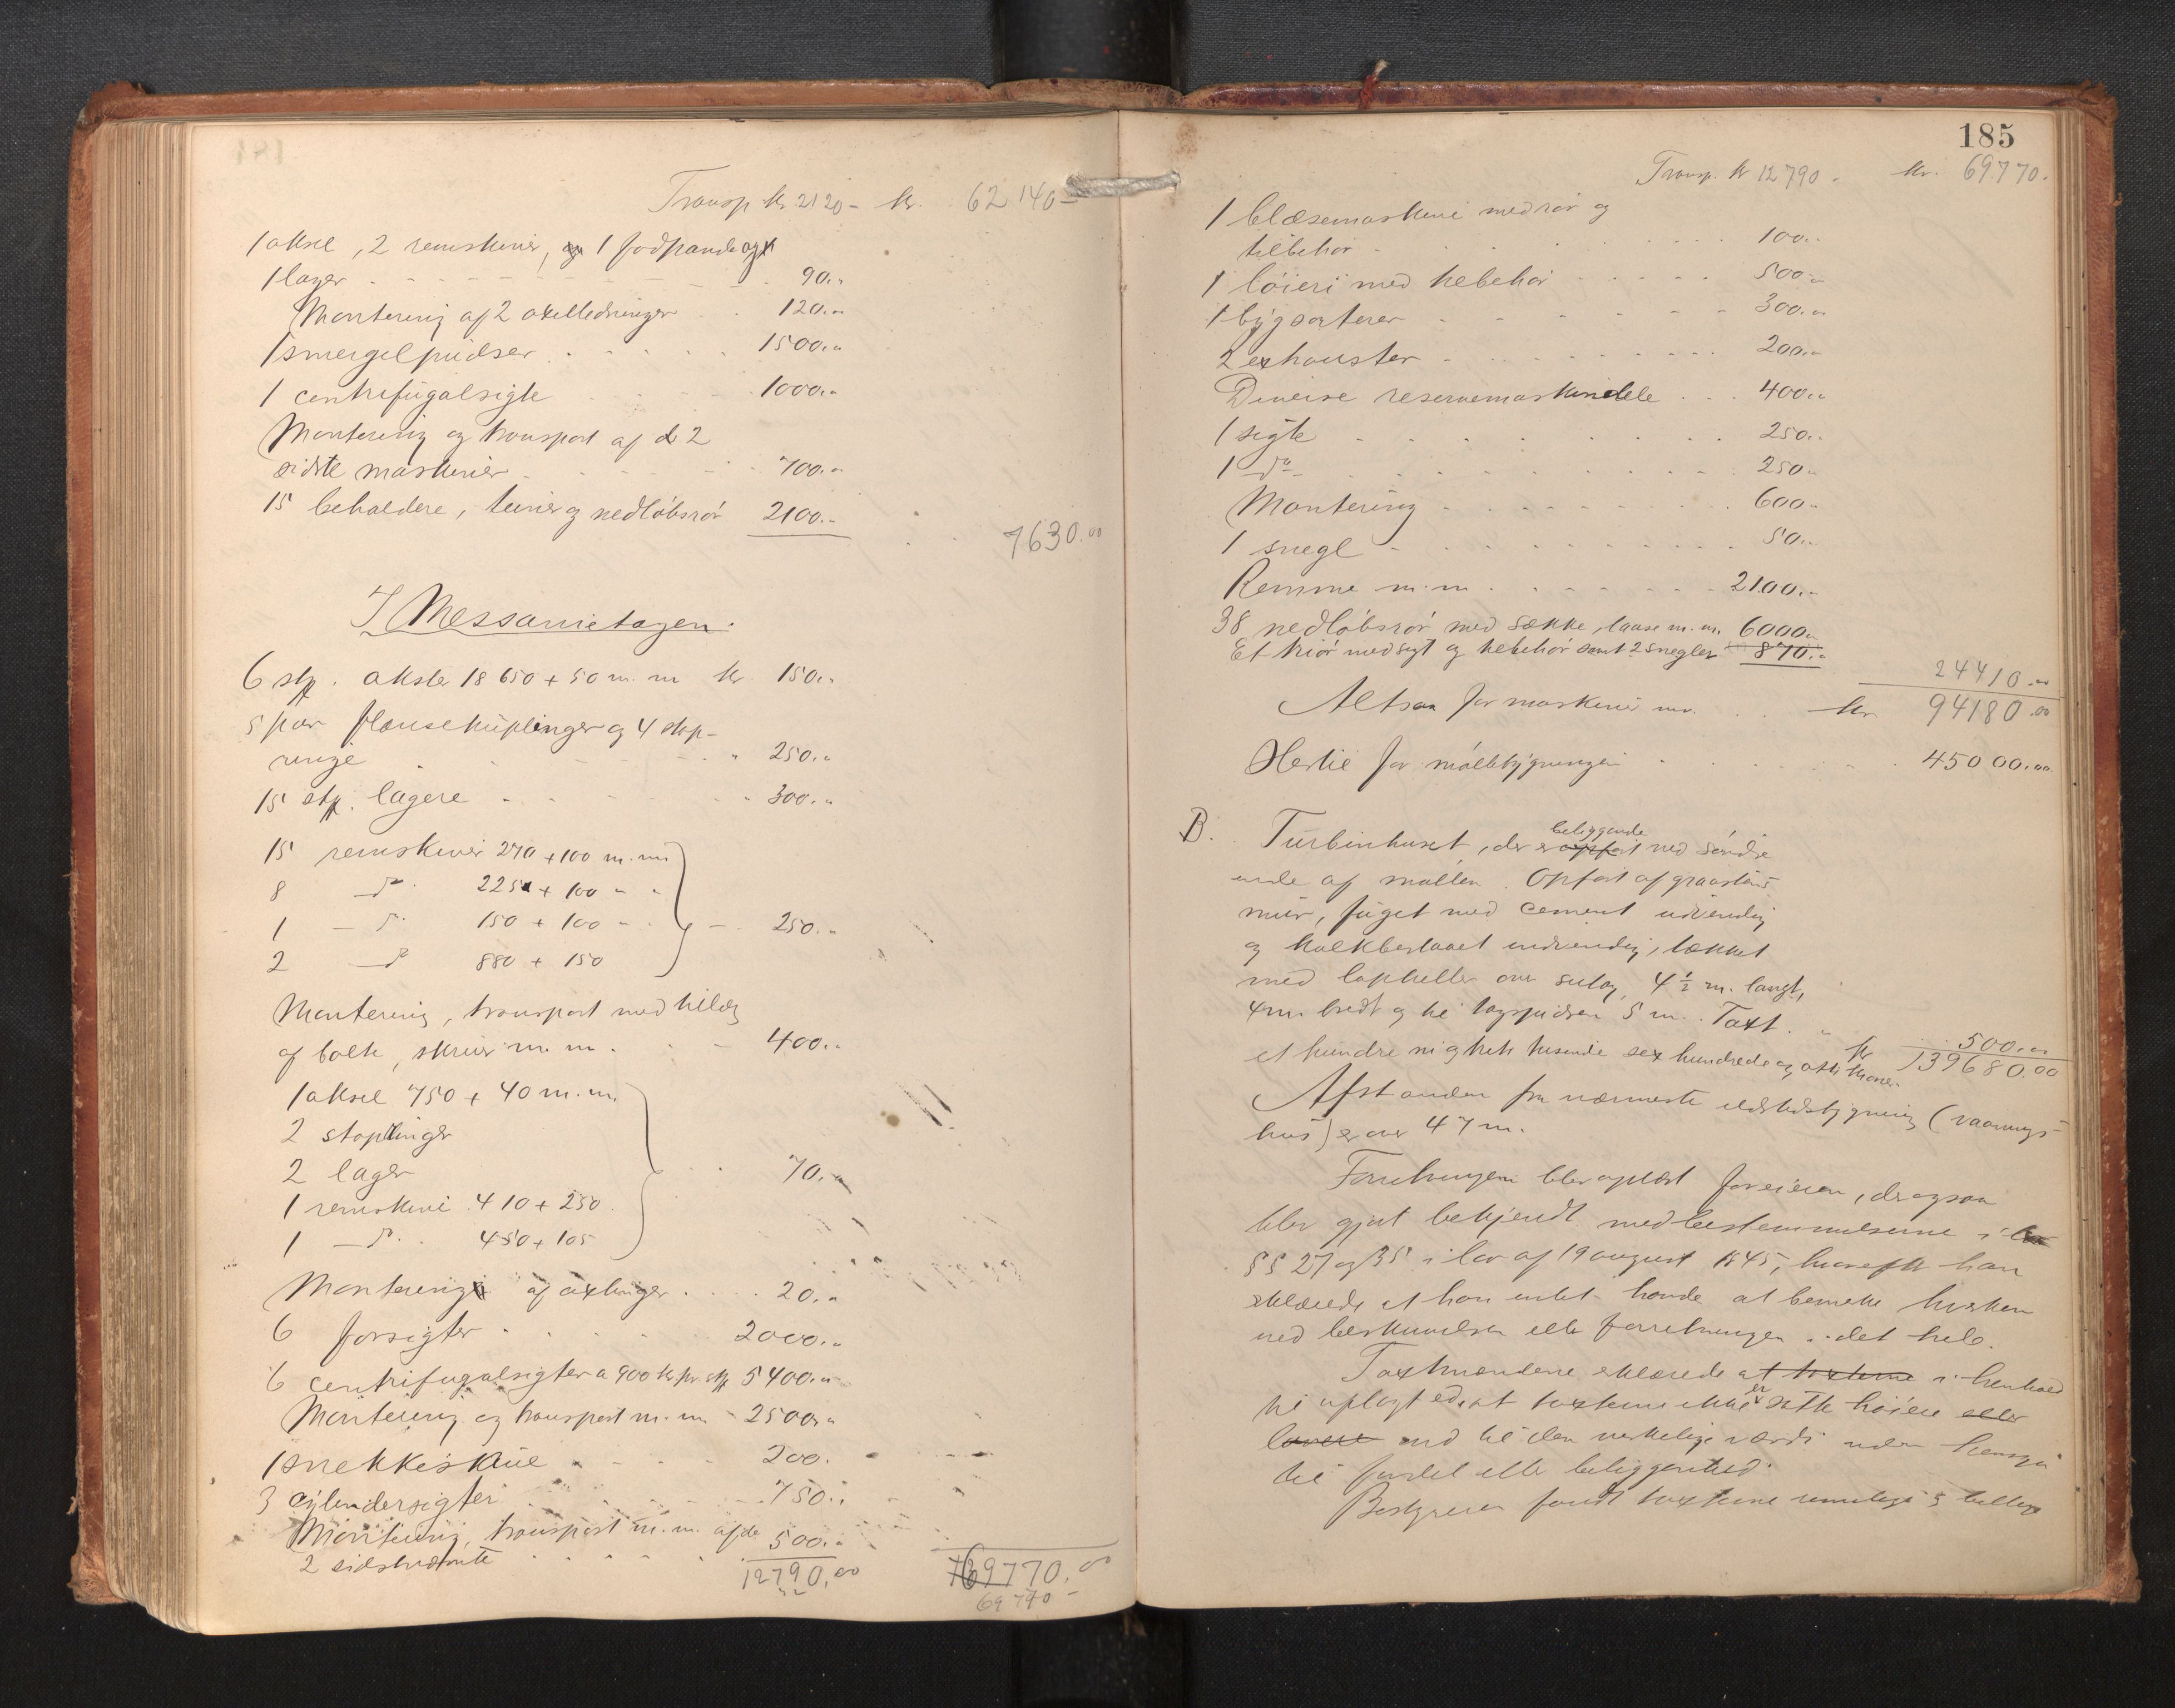 Transp kr. 2120 – kr. 62140 –
1 aksel, 2 remskiver, 1 fodpande og
1 lager 90.„
Montering af 2 axelledninger 120.„
1 smergelpudser 1500.„
1 centrifugalsigte 1000.„
Montering og transport af de 2
sidste maskiner 700.„
15 beholdere, tuter og nedløbsrør 2100.„
7630.00
I Messanietagen.
6 stk. aksler 18650 + 50 m.m kr 150.„
5 par flansekuplinger og 4 stop-
ringe „ 250.„
15 stk. lagere „ 300.„
15 remskiver 270 + 100 m.m
8 – do. 225 + 100 „ „
1 – do. 150 + 100 „ „ 250.„
2 – do 880 + 150
Montering, transport med tillæg
af bolte, skruer m.m. 400.„
1 aksel 750 + 40 m.m.
2 stopringer
2 lager
1 remskive 410 + 250 70.„
1 – do. 450 + 105
Montering af axlinger 20.„
6 forsigter 2000.„
6 centrifugalsigter a 900 kr pr. stk 5400.„
Montering og transport m.m 2500.„
1 snekkeskrue 200.
3 cylindersigter 750.„
Montering, transport m.m. af de
2 sidstnævnte 500.„
12790.00 69770.00
69770 –
185
Transp. kr 12790 – kr. 69770.
1 blæsemaskine med rør og
tilbehør 100.„
1 løieri med tilbehør 500.„
1 bygsorterer 300.„
2 exhauster 200.„
Diverse reservemaskindele 400.„
1 sigte 250.„
1 do 250.„
Montering 600.„
1 snegl 50.„
Remme m.m. 2100.„
38 nedløbsrør med sække, laase m.m. 6000.„
Et kiør med sigt og tilbehør samt 2 snegler 870.„
24410.00
Altsaa for maskiner mv. kr 94180.00
Hertil for møllebygningen 45000.00
B. Turbinhuset, der er beliggende ved søndre
ende af møllen. Opført af graastens
mur, fuget med cement udvendig
og kalkbeslaaet indvendig, tækket
med lapheller over sutag, 4 1/2 m. langt,
4 m. bredt og til tagspidsen 5 m. Taxt. „ 500.00
kr 139680.00
et hundre ni og treti tusende sex hundrede og otti kroner.
Afstanden fra nærmeste ildstedsbygning (vaanings-
hus) er over 47 m.
Forretningen blev oplæst for eieren, der ogsaa
blev gjort bekjendt med bestemmelserne i
§§ 27 og 35 i lov af 19 august 1845, hvorefter han
erklærede at han intet havde at bemerke hverken
ved beskrivelsen eller forretningen i det hele.
Taxtmændene erklærede at taxterne i henhold
til aflagt ed, at taxterne ikke er satte høiere eller
lavere end til den virkelige værdi uden hensyn
til fordel eller beliggenhed.
Bestyreren fandt taxterne rimelige & billige